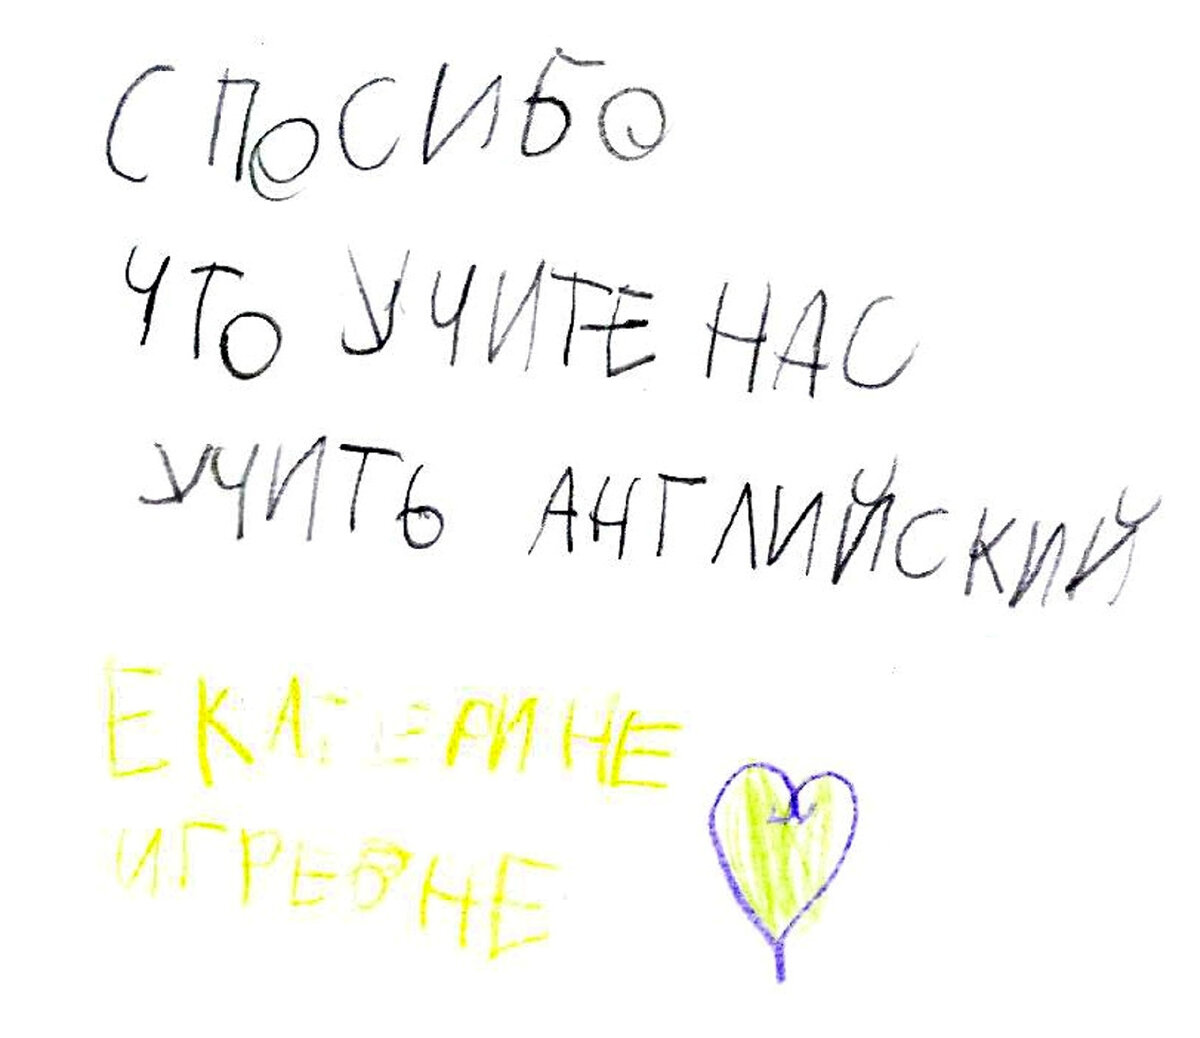 СПОСИБО
ЧТО УЧИТЕ НАС
УЧИТЬ АНГЛИЙСКИЙ
ЕКАТЕРИНЕ
ИГРЕВНЕ